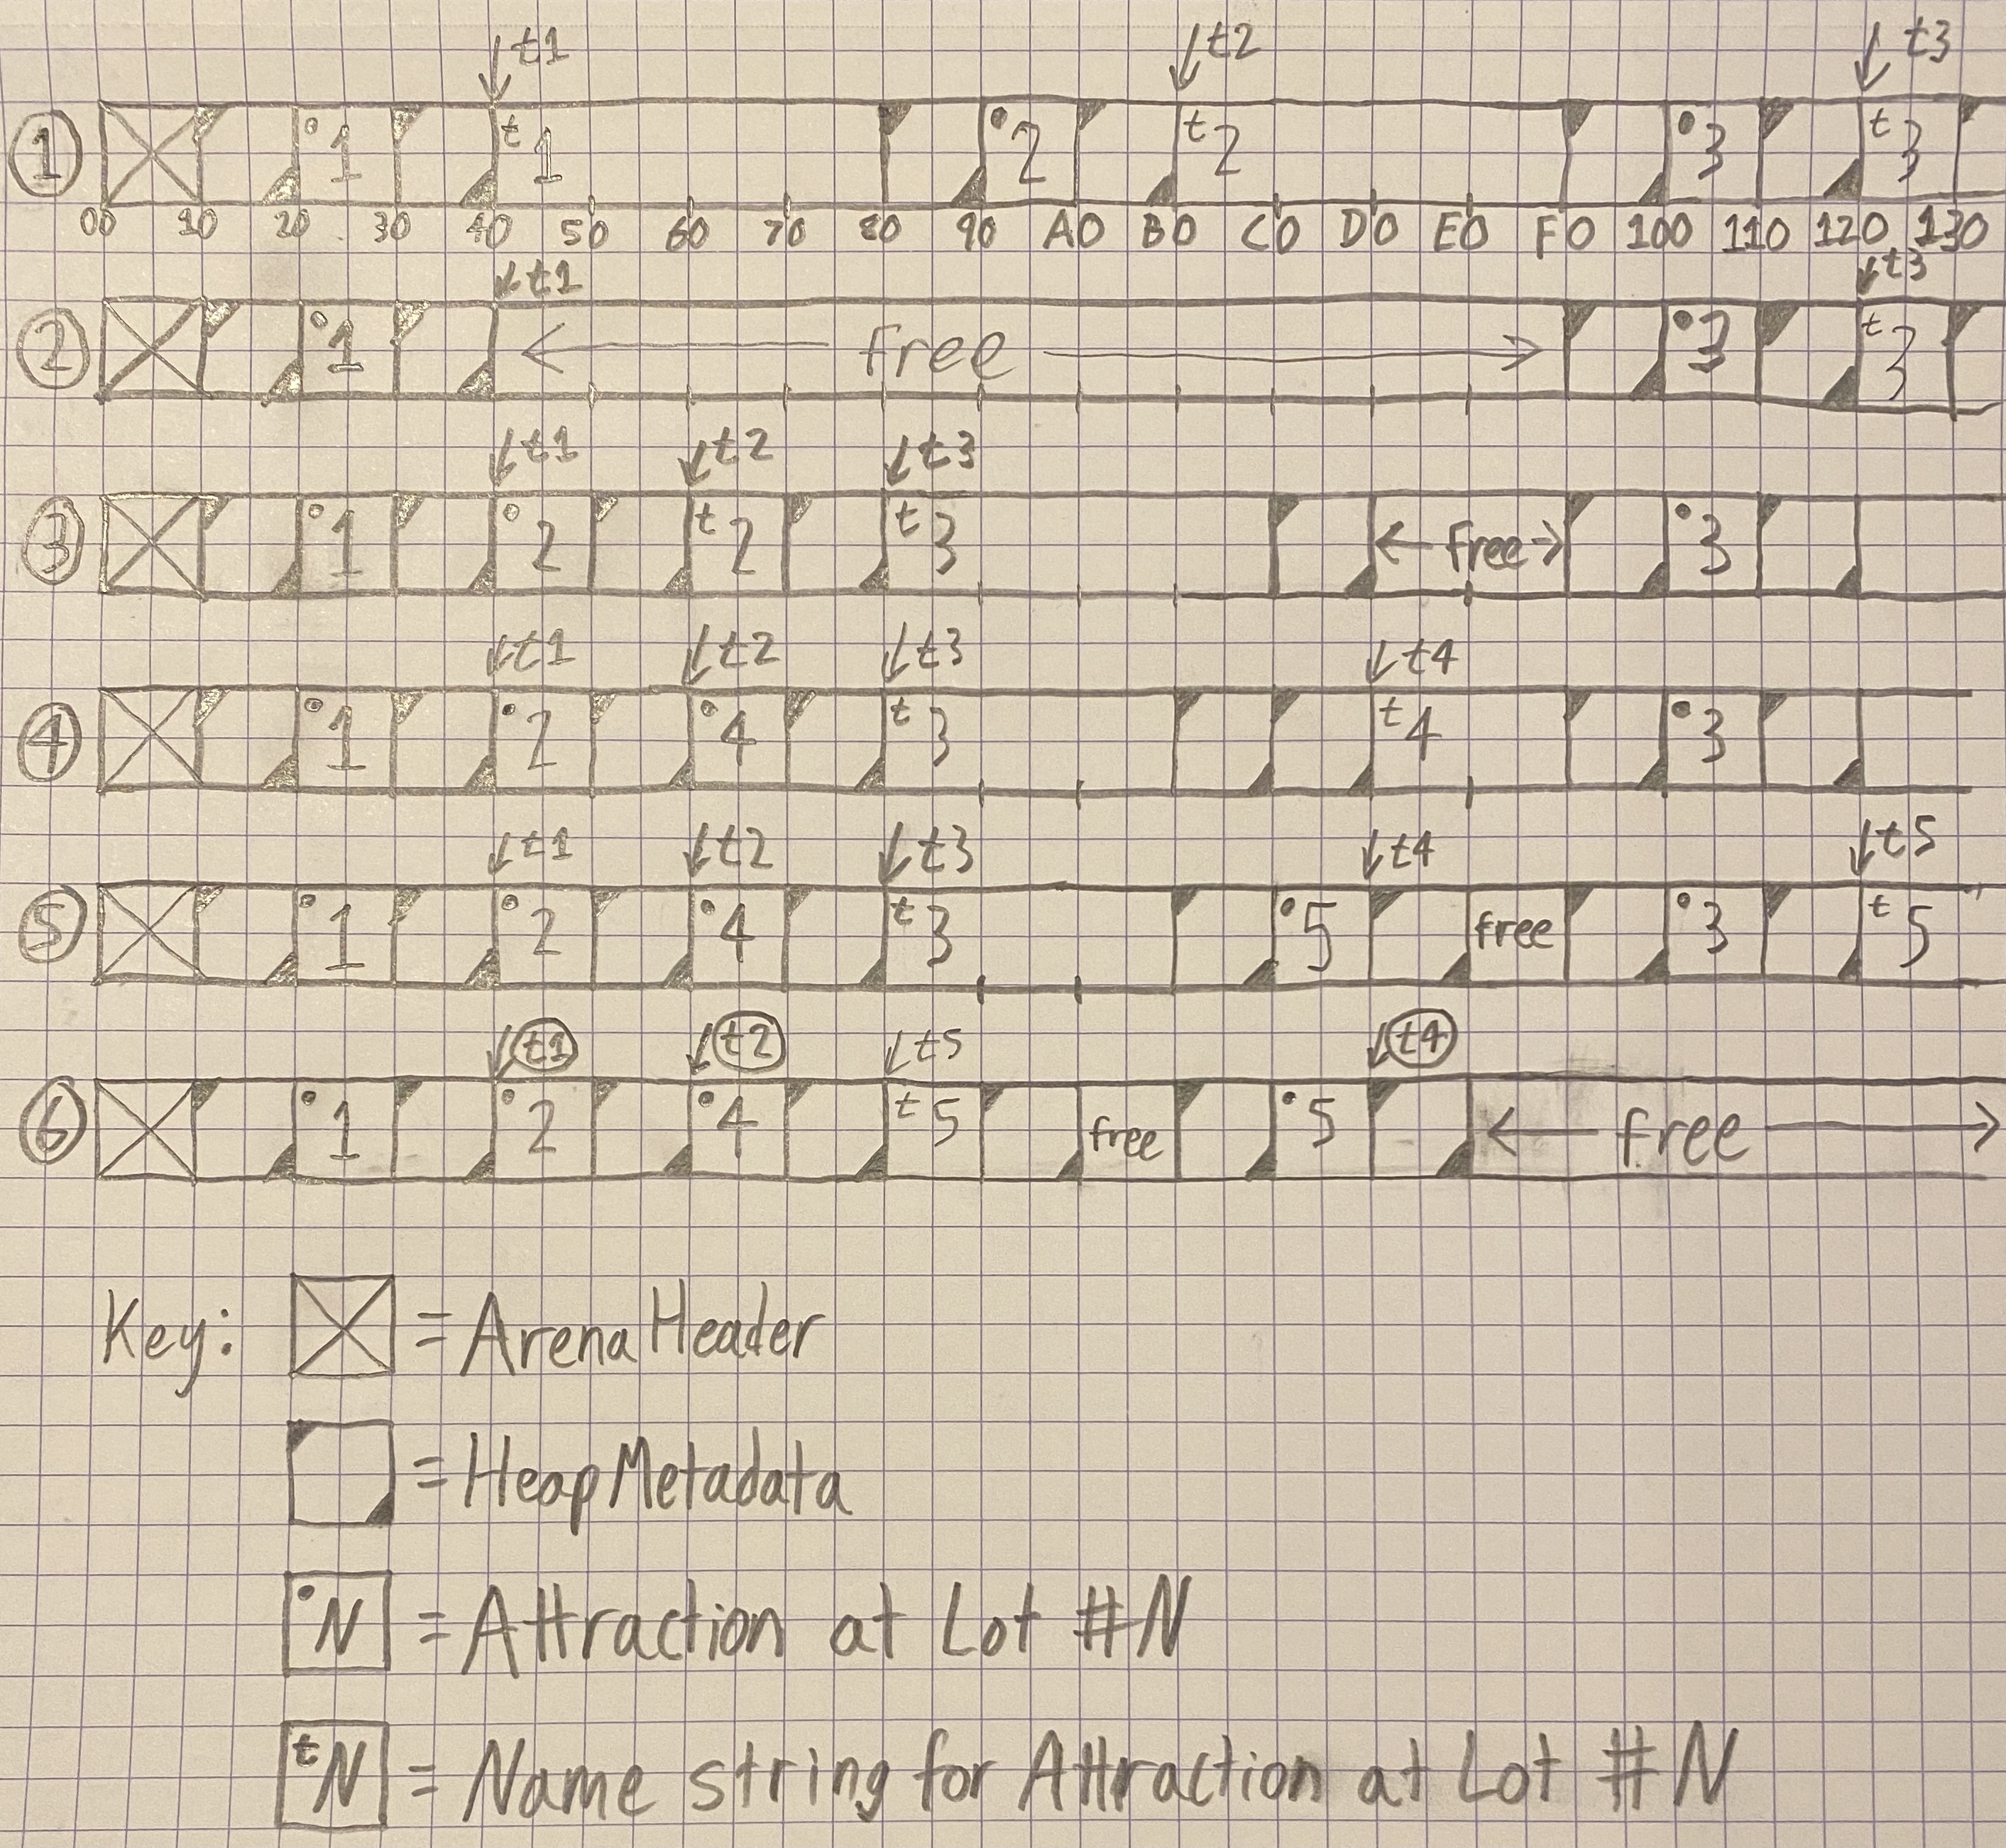 t1 t2 t3
1 °1 t1 °2 t2 °3 t3
00 10 20 30 40 50 60 70 80 90 A0 B0 C0 D0 E0 F0 100 110 120 130
t1 t3
2 °1 ← free → °3 t3
t1 t2 t3
3 °1 °2 t2 t3 ← free → °3
t1 t2 t3 t4
4 °1 °2 °4 t3 t4 °3
t1 t2 t3 t4 t5
5 °1 °2 °4 t3 °5 free °3 t5
t1 t2 t5 t4
6 °1 °2 °4 t5 free °5 ← free →
Key: = Arena Header
= Heap Metadata
°N = Attraction at Lot #N
tN = Name string for Attraction at Lot #N